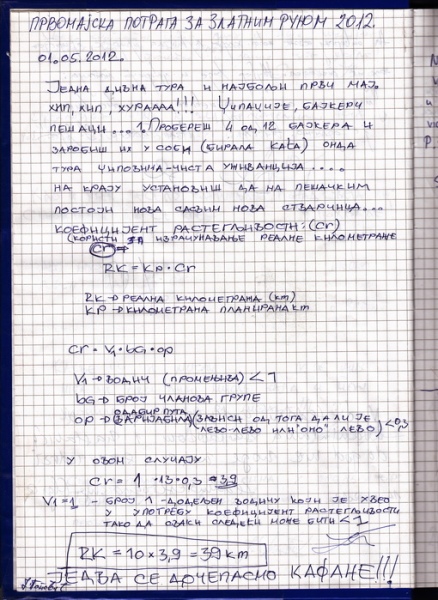 ПРВОМАЈСКА ПОТРАГА ЗА ЗЛАТНИМ РУНОМ 2012.
01.05.2012.
ЈЕДНА ДИВНА ТУРА И НАЈБОЉИ ПРВИ МАЈ.
ХИП, ХИП, ХУРАААА!!! ЏИПАЏИЈЕ, БАЈКЕРИ
ПЕШАЦИ... ПРОБЕРЕШ 4 ОД 12 БАЈКЕРА И
ЗАРОБИШ ИХ У СОБИ (БИРАЛА КАТА) ОНДА
ТУРА ЏИПОВИМА-ЧИСТА УЖИВАНЦИЈА....
НА КРАЈУ УСТАНОВИШ ДА НА ПЕШАЧКИМ
ПОСТОЈИ НОВА САСВИМ НОВА СТВАРЧИЦА...
КОЕФИЦИЈЕНТ РАСТЕГЉИВОСТИ: (Cr)
(КОРИСТИ ЗА ИЗРАЧУНАВАЊЕ РЕАЛНЕ КИЛОМЕТРАЖЕ
Cr ⇒
RK = Kp · Cr
RK → РЕАЛНА КИЛОМЕТРАЖА (km)
KP → КИЛОМЕТРАЖА ПЛАНИРАНА km
Cr = V₁ · bG · op
V₁ → ВОДИЧ (ПРОМЕНЉИВА) < 1
bG → БРОЈ ЧЛАНОВА ГРУПЕ
ОДАБИР ПУТА
op → (ВАРИЈАБИЛА) (ЗАВИСИ ОД ТОГА ДА ЛИ ЈЕ < 0,3
"ЛЕВО-ЛЕВО ИЛИ "ОНО" ЛЕВО)
У ОВОМ СЛУЧАЈУ
Cr = 1 · 13 · 0,3 = 3,9
V1 = 1 - БРОЈ 1 - ДОДЕЉЕН ВОДИЧУ КОЈИ ЈЕ УВЕО
У УПОТРЕБУ КОЕФИЦИЈЕНТ РАСТЕГЉИВОСТИ
ТАКО ДА СВАКИ СЛЕДЕЋИ МОЖЕ БИТИ < 1
RK = 10 x 3,9 = 39 km
ЈЕДВА СЕ ДОЧЕПАСМО КАФАНЕ!!!